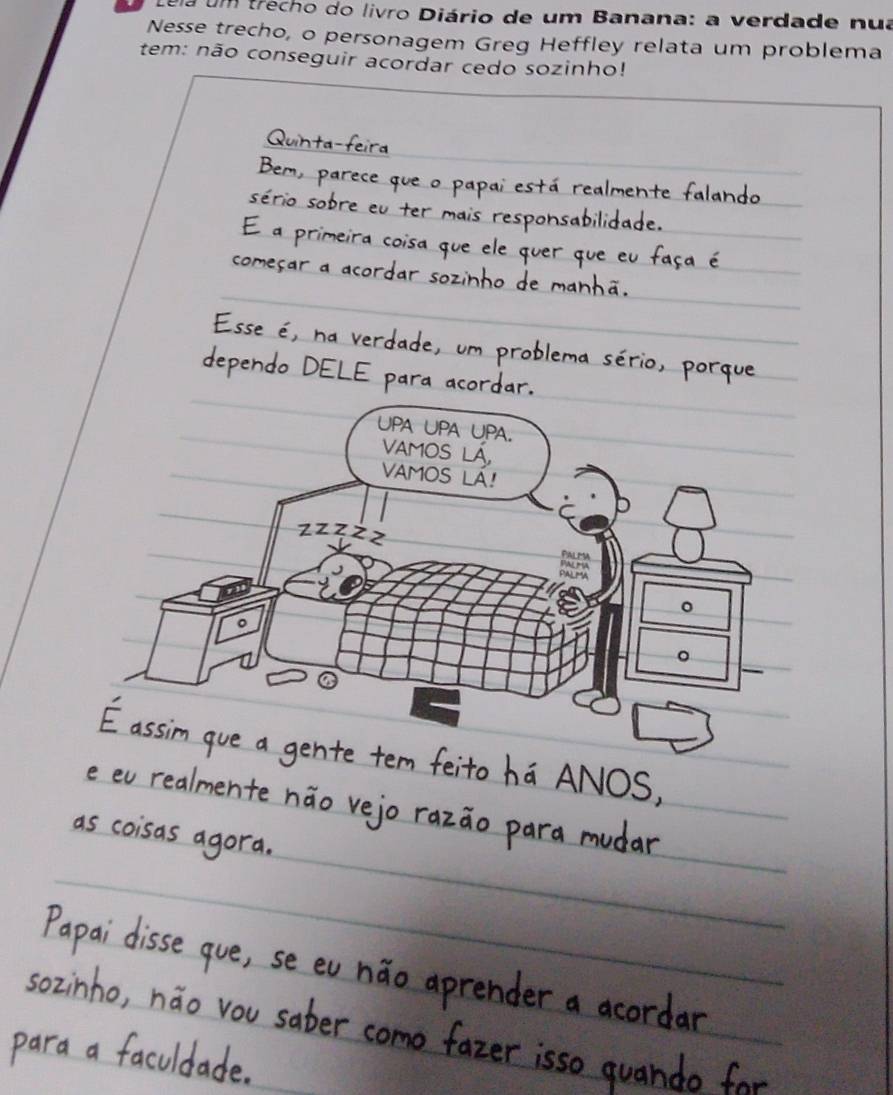 Leia um trecho do livro Diário de um Banana: a verdade nua
Nesse trecho, o personagem Greg Heffley relata um problema
tem: não conseguir acordar cedo sozinho!
Quinta-feira
Bem, parece que o papai está realmente falando
sério sobre eu ter mais responsabilidade.
E a primeira coisa que ele quer que eu faça é
começar a acordar sozinho de manhã.
Esse é, na verdade, um problema sério, porque
dependo DELE para acordar.
UPA UPA UPA.
VAMOS LÁ,
VAMOS LÁ!
ZZZZZ
PALMA
PALMA
PALMA
É assim que a gente tem feito há ANOS,
e eu realmente não vejo razão para mudar
as coisas agora.
Papai disse que, se eu não aprender a acordar
sozinho, não vou saber como fazer isso quando for
para a faculdade.